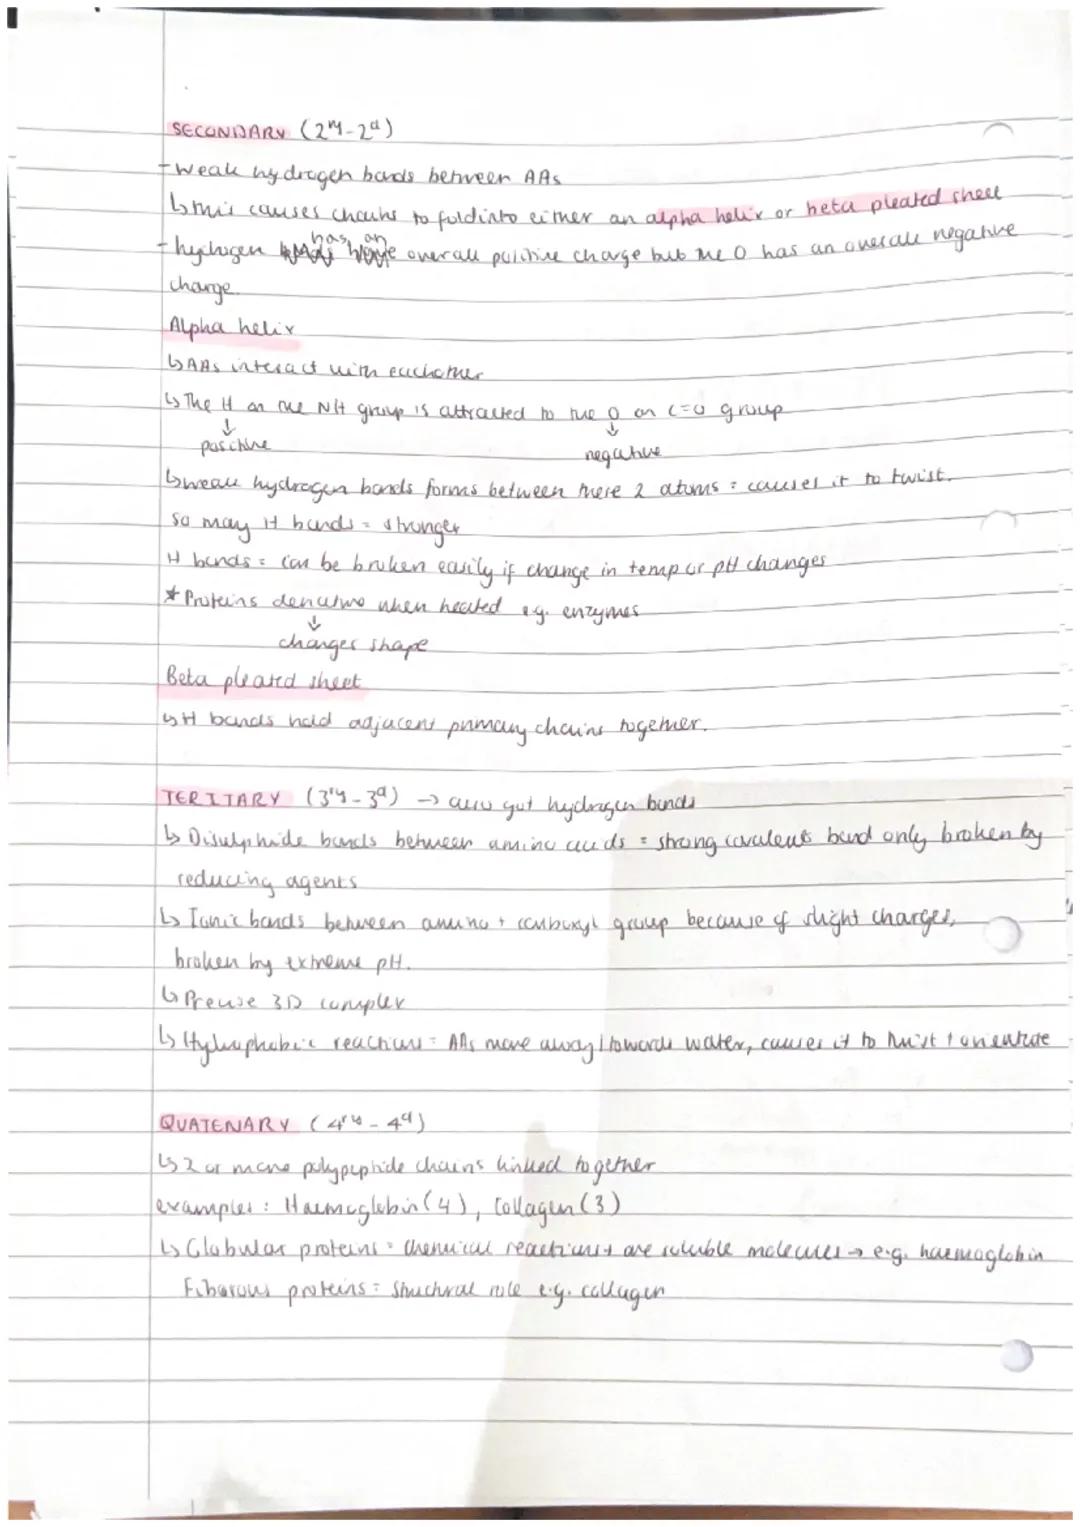 SECONDARY (2ry-2d)
- Weak hydrogen bonds between AAs
↳ this causes chains to fold into either an alpha helix or beta pleated sheet
- hydrogen has an overall positive charge but the O has an overall negative
charge.
Alpha helix
↳ AAs interact with eachother
↳ The H on the NH group is attracted to the O on C=O group
↓ ↓
positive negative
↳ weak hydrogen bonds forms between these 2 atoms = causes it to twist.
so may H bonds = stronger
H bonds = can be broken easily if change in temp or pH changes
* Proteins denature when heated e.g. enzymes
↓
changes shape
Beta pleated sheet
↳ H bonds hold adjacent primary chains together.
TERITARY (3ry-3d) → also got hydrogen bonds
↳ Disulphide bonds between amino acids = strong covalent bond only broken by
reducing agents
↳ Ionic bonds between amino + carboxyl group because of slight charges,
broken by extreme pH.
↳ Precise 3D complex
↳ Hydrophobic reactions = AAs move away/towards water, causes it to twist +
QUATENARY (4ry-4d)
↳ 2 or more polypeptide chains linked together
examples: Haemoglobin (4), Collagen (3)
↳ Globular proteins = chemical reactions + are soluble molecules → e.g. haemoglobin
Fibarous proteins = structural role e.g. collagen